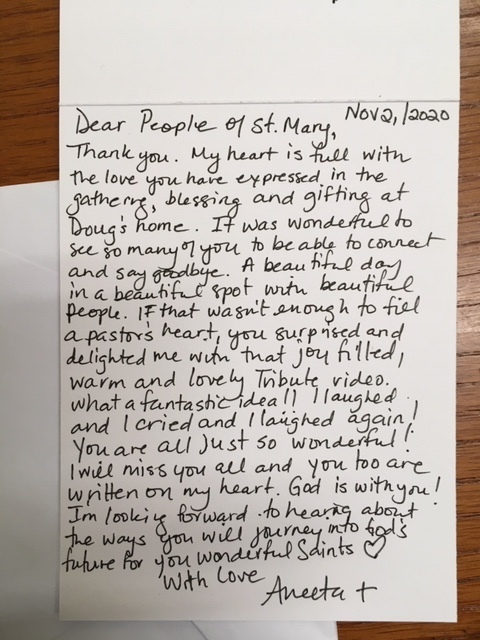 Nov 2,/2020
Dear People of St. Mary,
Thank you. My heart is full with
the love you have expressed in the
gathering, blessing and gifting at
Doug's home. It was wonderful to
see so many of you to be able to connect
and say goodbye. A beautiful day
in a beautiful spot with beautiful
People. If that wasn't enough to fill
a pastor's heart, you surprised and
delighted me with that joy filled,
warm and lovely Tribute video.
What a fantastic idea!! I laughed
and I cried and I laughed again!
You are all just so wonderful!
I will miss you all and you too are
written on my heart. God is with you!
Im looking forward to hearing about
the ways you will journey into God's
future for you wonderful Saints ♡
With Love
Aneeta +